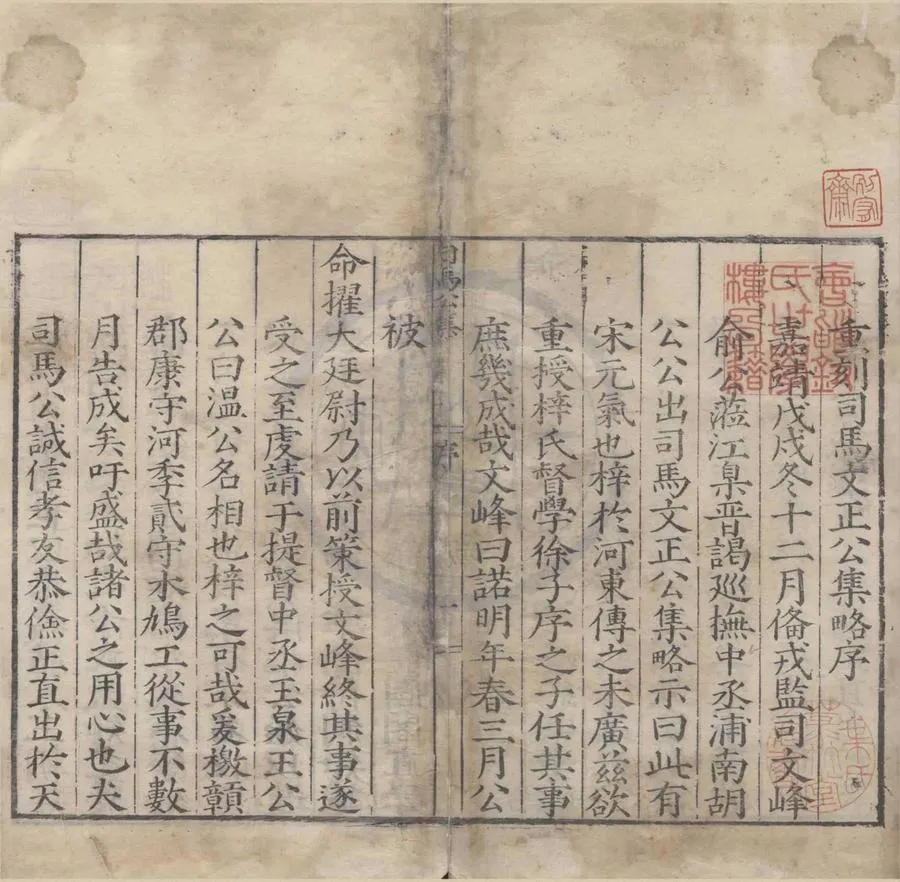 重刻司馬文正公集略序
嘉靖戊戌冬十二月俻戎監司文峰
俞公蒞江臬晋謁巡撫中丞浦南胡
公公出司馬文正公集略示曰此有
宋元氣也梓於河東傳之未廣兹欲
重授梓氏督學徐子序之子任其事
庶幾成哉文峰曰諾明年春三月公
被
命擢大廷尉乃以前策授文峰終其事遂
受之至虔請于提督中丞玉泉王公
公曰温公名相也梓之可哉爰檄贑
郡康守河季貳守水鳩工從事不數
月告成矣吁盛哉諸公之用心也夫
司馬公誠信孝友恭儉正直出於天
司馬公集
序